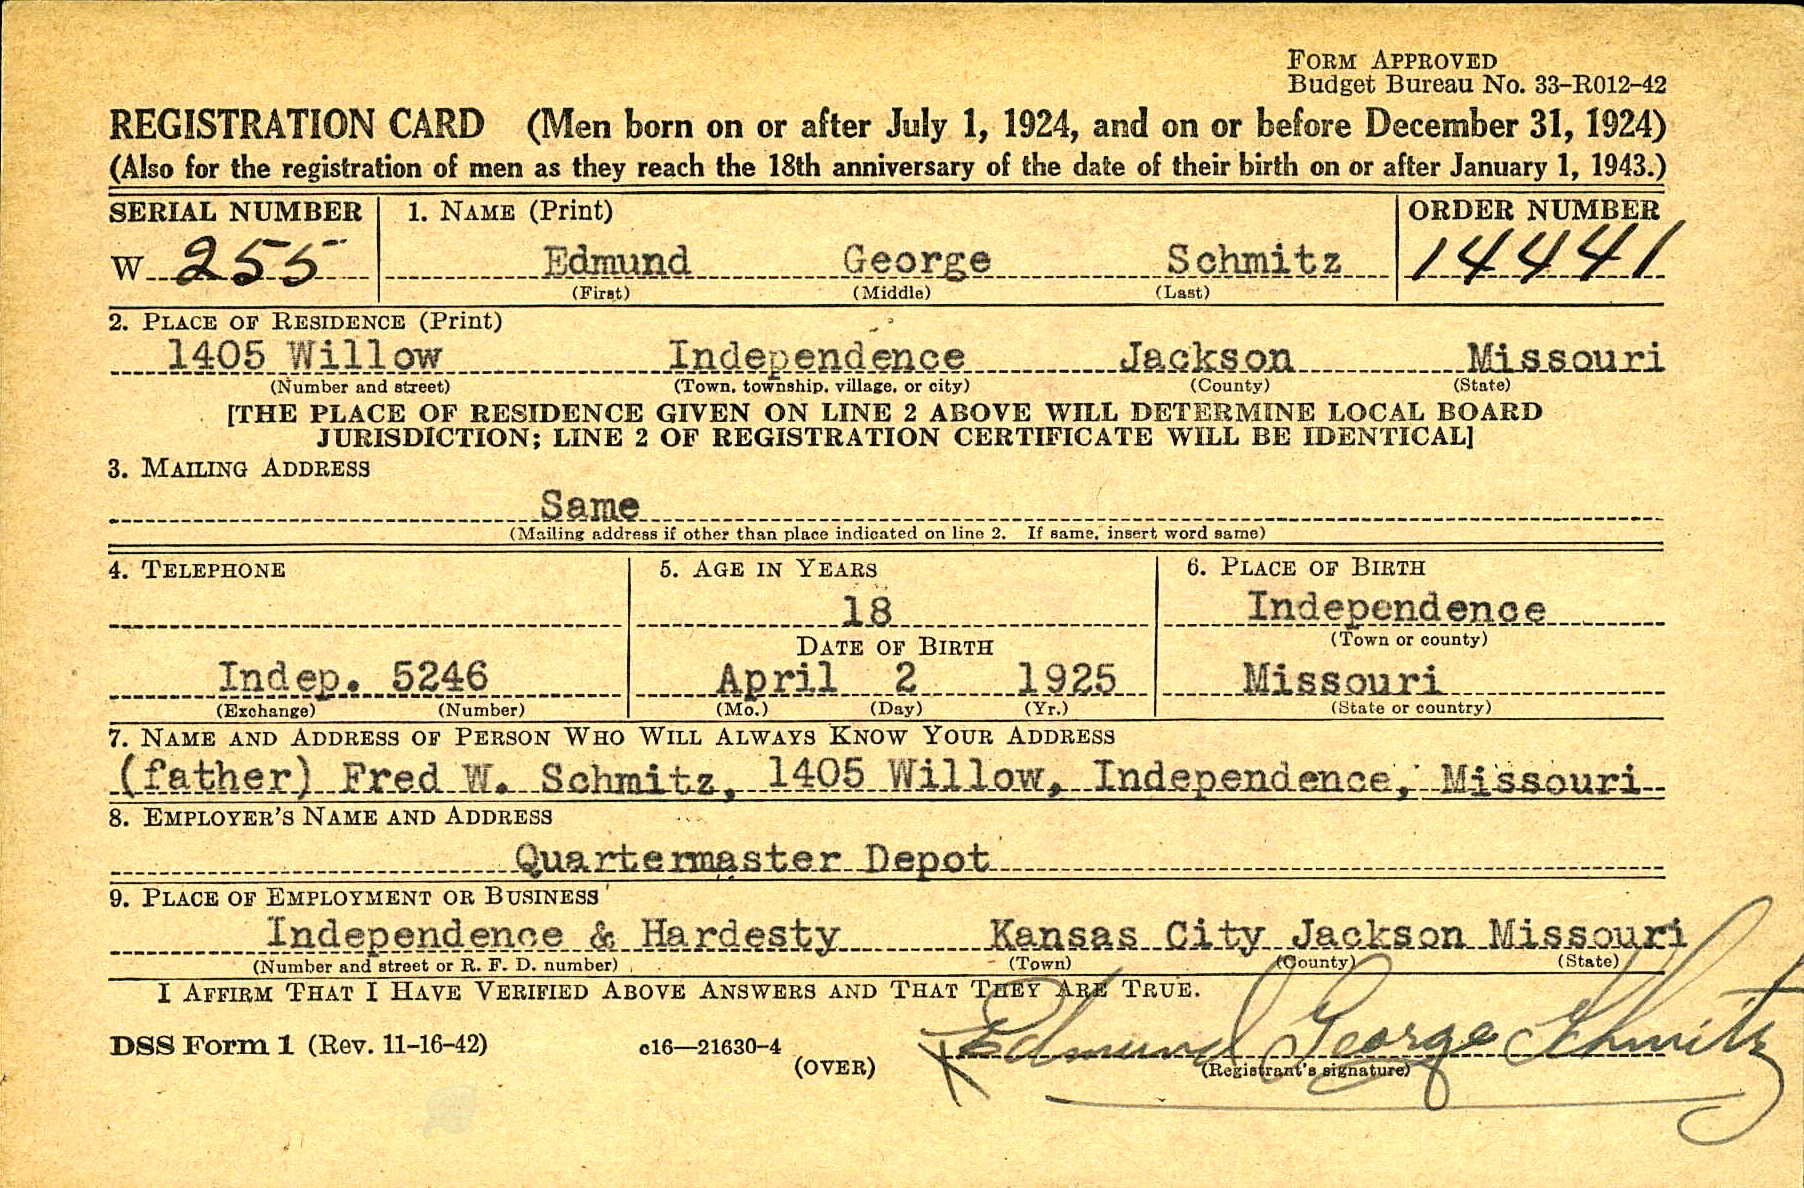 FORM APPROVED
Budget Bureau No. 33-R012-42
REGISTRATION CARD (Men born on or after July 1, 1924, and on or before December 31, 1924)
(Also for the registration of men as they reach the 18th anniversary of the date of their birth on or after January 1, 1943.)
SERIAL NUMBER 1. NAME (Print) ORDER NUMBER
W 255 Edmund George Schmitz 14441
(First) (Middle) (Last)
2. PLACE OF RESIDENCE (Print)
1405 Willow Independence Jackson Missouri
(Number and street) (Town, township, village, or city) (County) (State)
[THE PLACE OF RESIDENCE GIVEN ON LINE 2 ABOVE WILL DETERMINE LOCAL BOARD
JURISDICTION; LINE 2 OF REGISTRATION CERTIFICATE WILL BE IDENTICAL]
3. MAILING ADDRESS
Same
(Mailing address if other than place indicated on line 2. If same, insert word same)
4. TELEPHONE 5. AGE IN YEARS 6. PLACE OF BIRTH
18 Independence
DATE OF BIRTH (Town or county)
Indep. 5246 April 2 1925 Missouri
(Exchange) (Number) (Mo.) (Day) (Yr.) (State or country)
7. NAME AND ADDRESS OF PERSON WHO WILL ALWAYS KNOW YOUR ADDRESS
(father) Fred W. Schmitz, 1405 Willow, Independence, Missouri
8. EMPLOYER'S NAME AND ADDRESS
Quartermaster Depot
9. PLACE OF EMPLOYMENT OR BUSINESS
Independence & Hardesty Kansas City Jackson Missouri
(Number and street or R. F. D. number) (Town) (County) (State)
I AFFIRM THAT I HAVE VERIFIED ABOVE ANSWERS AND THAT THEY ARE TRUE.
DSS Form 1 (Rev. 11-16-42) c16—21630-4 Edmund George Schmitz
(OVER) (Registrant's signature)